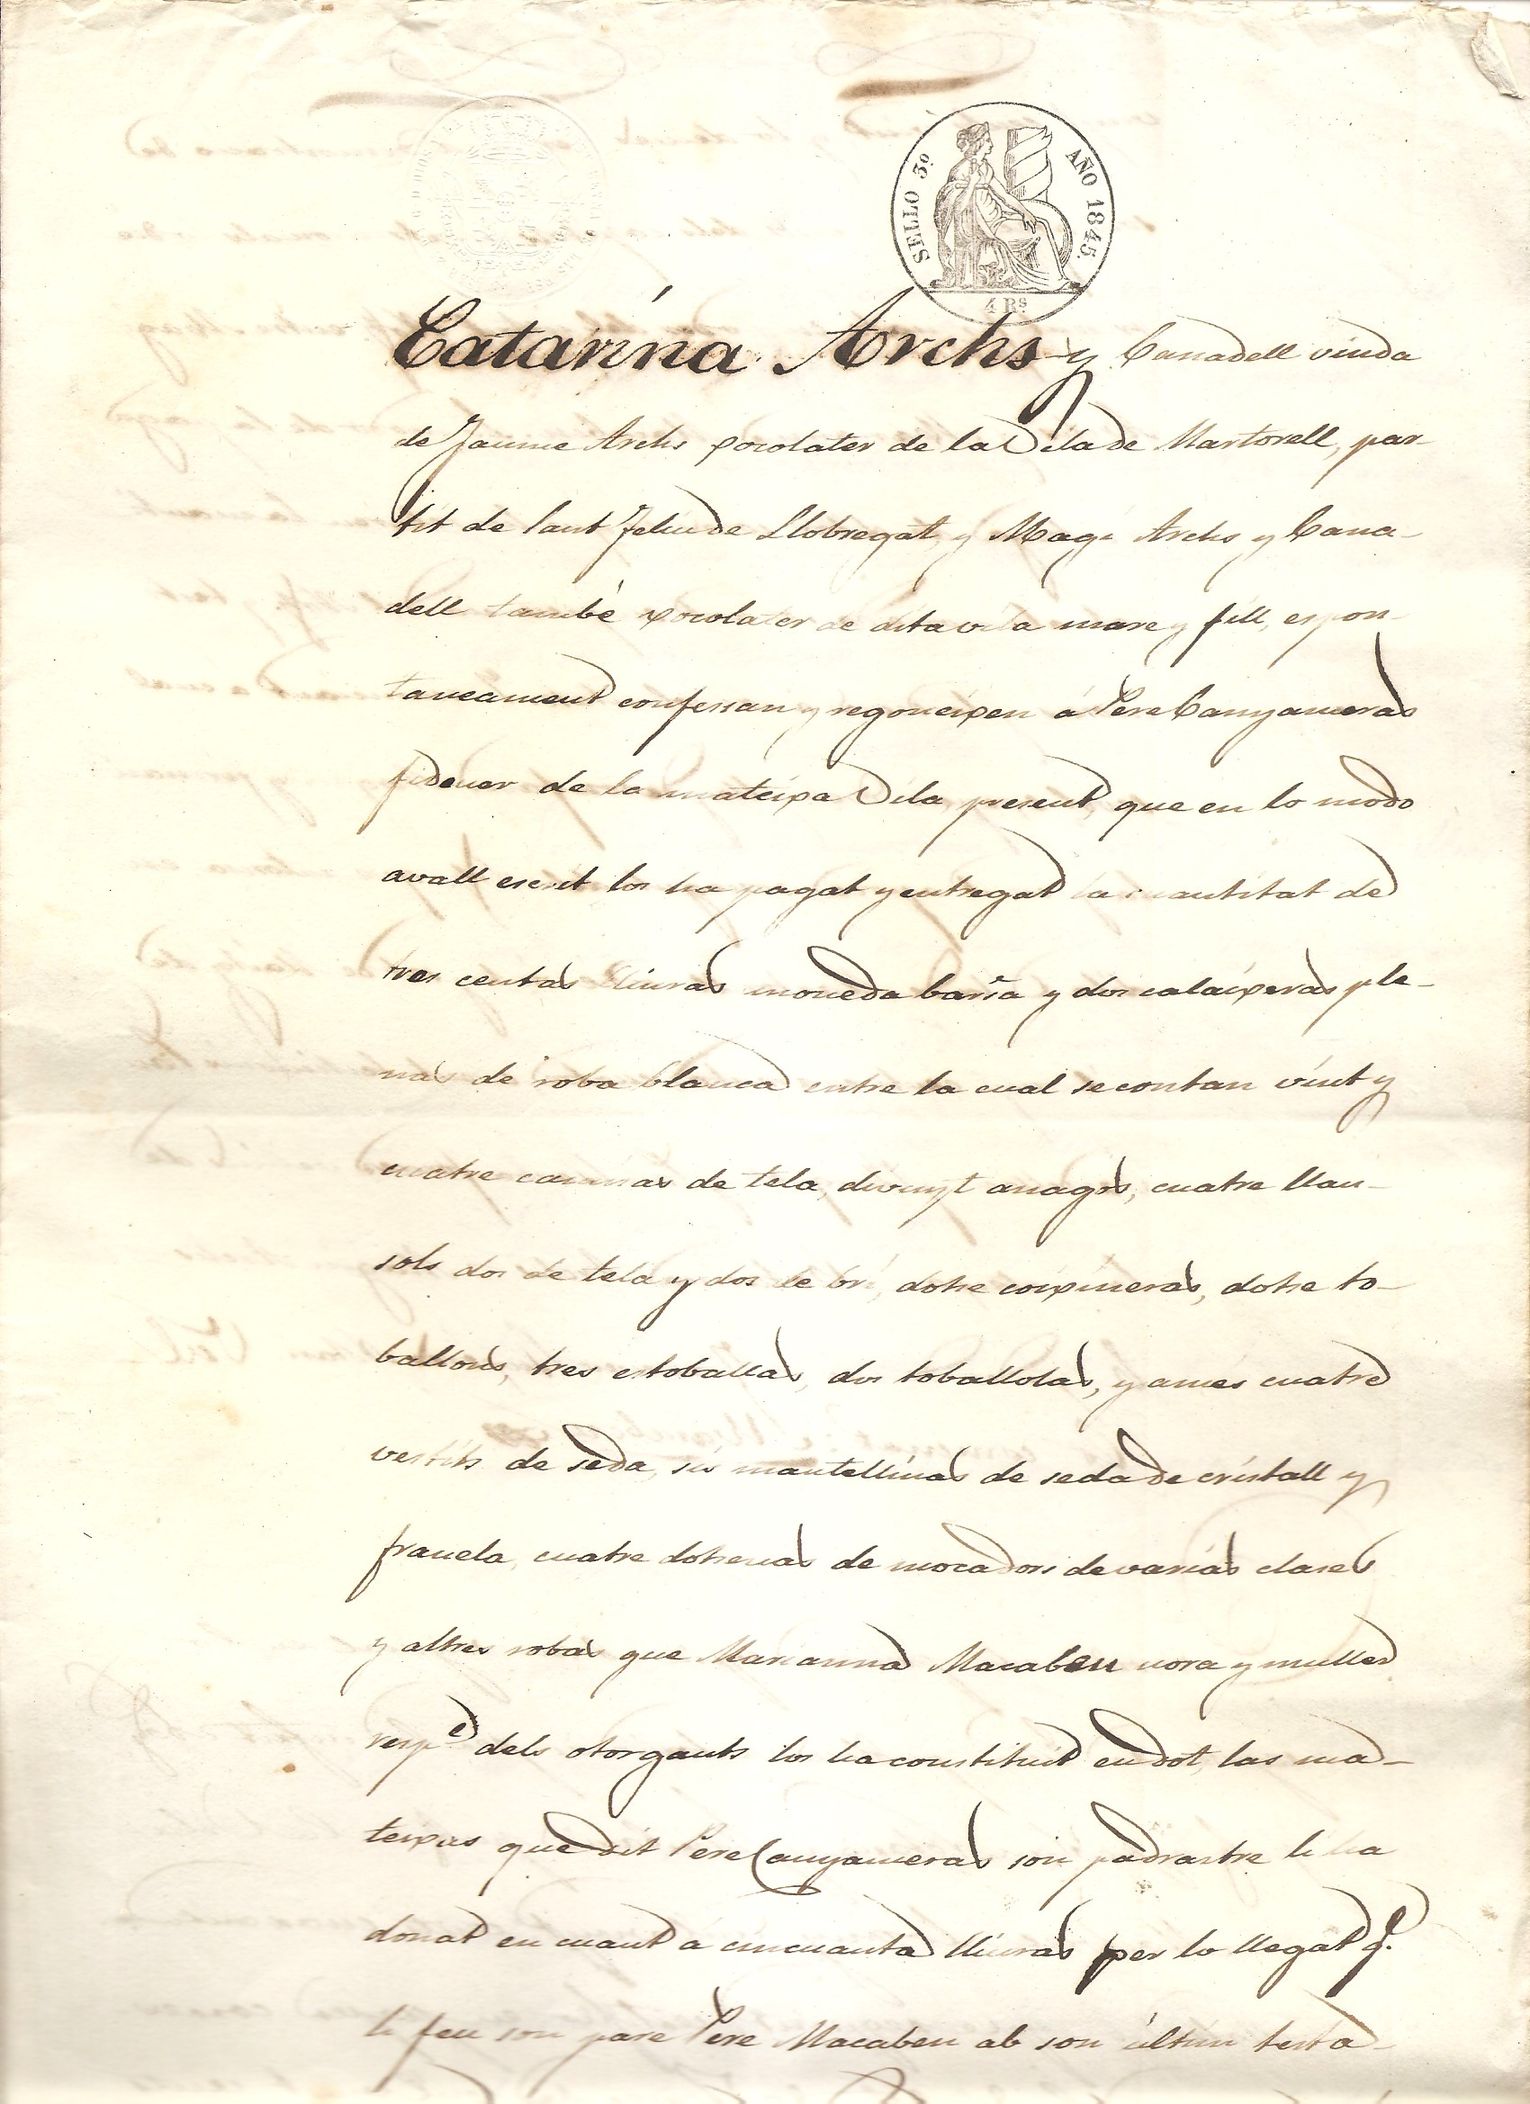 SELLO 3º AÑO 1845.
4 Rs
Catarina Archs y Canadell viuda
de Jaume Archs xocolater de la Vila de Martorell, par-
tit de Sant Feliu de Llobregat, y Magi Archs y Cana-
dell també xocolater de dita vila mare y fill, espon-
taneament confessan y regoneixen á Pere Canyameras
fideuer de la mateixa Vila, present, que en lo modo
avall escrit los ha pagat y entregat la cuantitat de
tres centas lliuras moneda barsa y dos calaixeras ple-
nas de roba blanca entre la cual se contan vint y
cuatre camisas de tela, divuyt anagos, cuatre llan-
sols dos de tela y dos de bri, dotse coixineras, dotse to-
vallons, tres estoballas, dos toballolas, y ames cuatre
vestits de seda, sis mantellinas de seda de cristall y
franela, cuatre dotsenas de mocadors de varias clases
y altres robas que Marianna Macabeu nora y muller
respe dels otorgants los ha constituit en dot, las ma-
teixas que dit Pere Canyameras son padrastre li ha
donat en cuant á cincuanta lliuras per lo llegat q.
li feu son pare Pere Macabeu ab son últim testa-